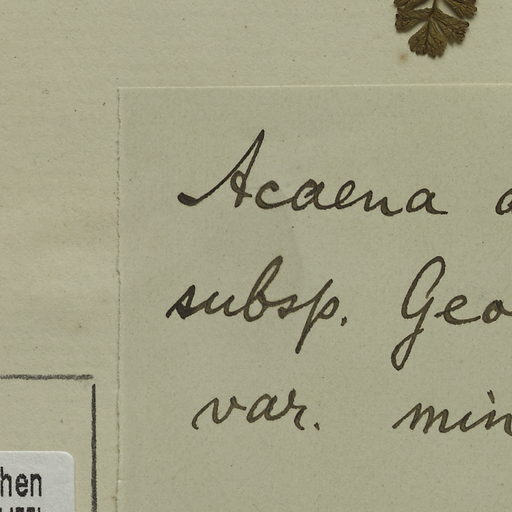 Acaena
subsp. Geo
var. min
hen